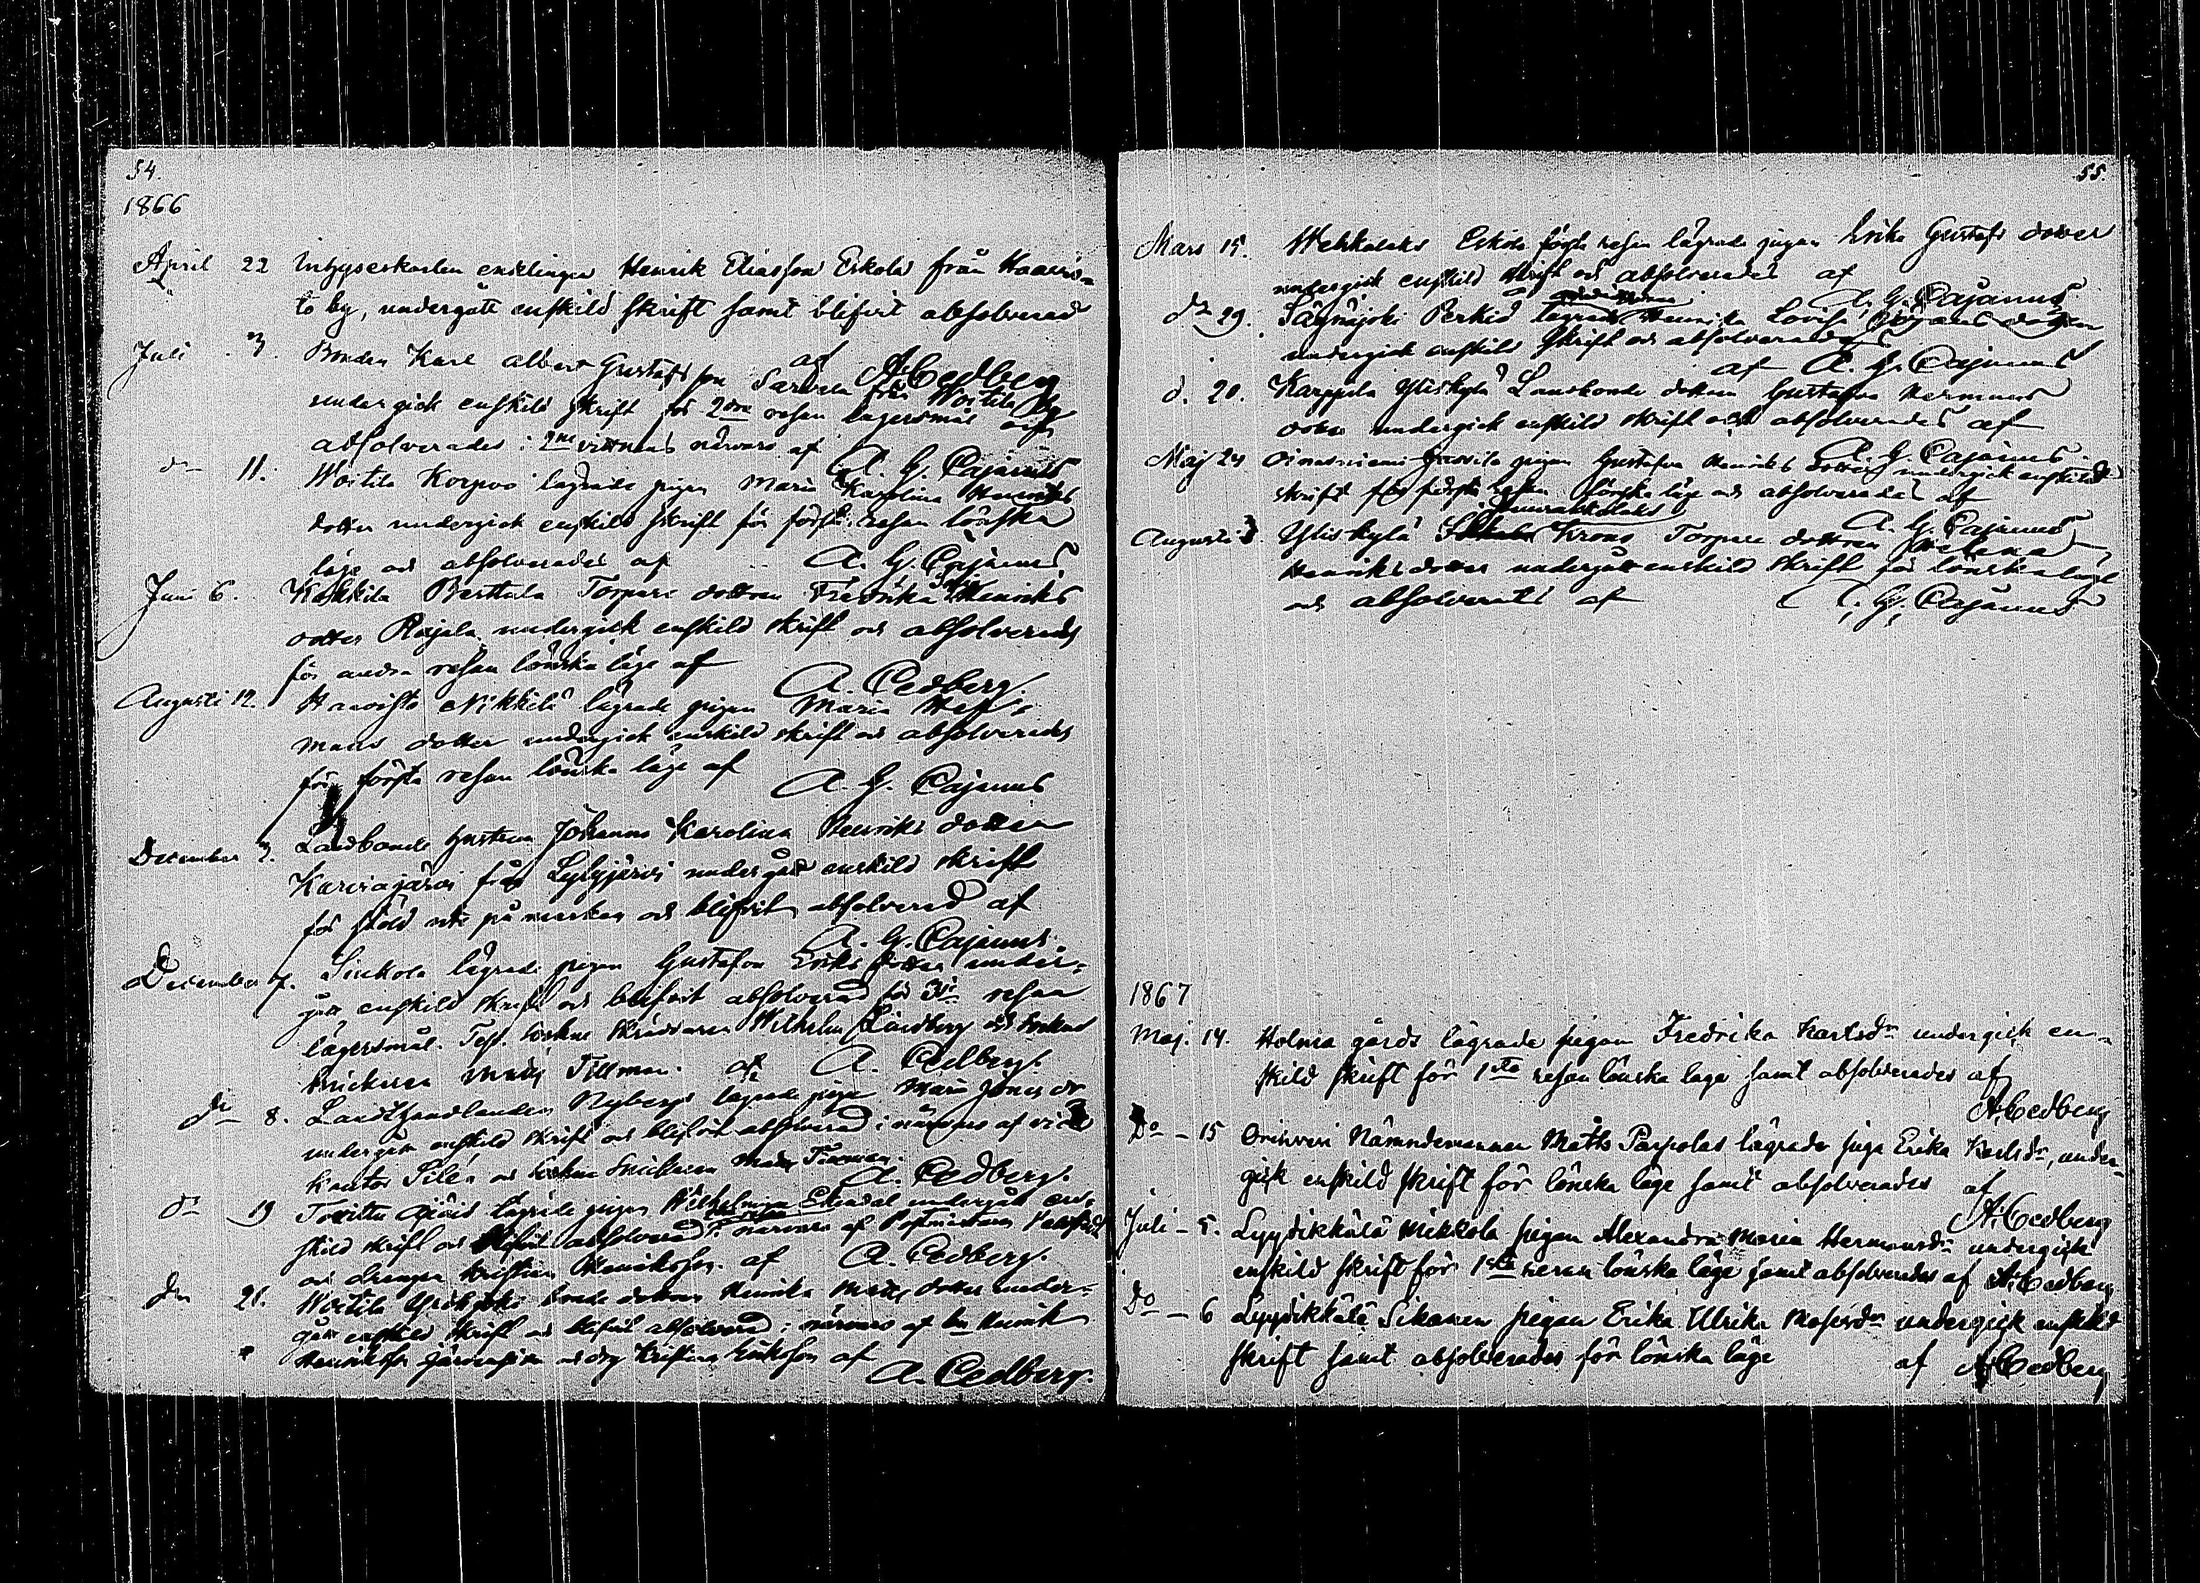 54.
1866
April 22 Inhyseskarlen enklingen Henrik Eliasson Eskola från Haavis-
to by, undergått enskild skrift samt blifvit absolverad
af A Cedberg
Juli 3. Bonden Karl Albert Gustafsson Sarvela från Woitila by
undergick enskild skrift för 2dra resan lägersmål och
absolverades i 2ne vittnens närvaro af
A. G. Cajanus
do 11. Woitila Korpvo lägrade pigan Maria Karolina Henriks
dotter undergick enskild skrift för första resan lönska
läge och absolverades af A. G. Cajanus
Juni 6. Kokkila Berttula Torpare dottren Fredrika Henriks
dotter Rajala undergick enskild skrift och absolverades
för andra resan lönska läge af
A. Cedberg.
Augusti 12. Haavisto Nikkilä lägrade pigan Maria Her-
mans dotter undergick enskild skrift och absolverades
för första resan lönska läge af
A. G. Cajanus
December 3. Landbonde hustrun Johanna Karolina Henriks dotter
Karviajärvi från Lylyjärvi undergått enskild skrift
för stöld och blifvit absolverad af
A. G. Cajanus.
December 7. lägrade pigan Gustafva Eriks dotter under-
gått enskild skrift och blifvit absolverad för 3je resan
lägersmål. Test. Skräddaren Wilhelm Lindberg och
Snickaren Tillman. af A. Cedberg.
do 8. Landthandlanden Nybergs lägrade piga Maria Jonas dr
undergått enskild skrift och blifvit absolverad i närvaro af
Kantor Silén och Snickaren A. Cedberg.
do 19 lägrade pigan Wilhelmina undergått en-
skild skrift och blifvit absolverad i närvaro af
och drängen Kristian Henriksson. af A. Cedberg.
do 21. Woitila bonde dottren Henrika Mats dotter under-
gått enskild skrift och blifvit absolverad i närvaro af Henrik
Henriksson och drg Kristian Eriksson af
A. Cedberg.
55.
Mars 15. Wehkalaks Eskola första resan lägrade pigan Erika Gustafs dotter
undergick enskild skrift och absolverades af
A. G. Cajanus
do 29. Säynäjoki Perkiö lägrade Henrika Lovisa dotter
undergick enskild skrift och absolverades
af A. G. Cajanus
d. 20. Karppila Yliskylä Landbonde dottren Gustafva Hermans
dotter undergick enskild skrift och absolverades af
A. G. Cajanus
Maj 24 Oinasniemi Jussila pigan Gustafva Henriks dotter undergick enskild
skrift för första resan lönska läge och absolverades af
A. G. Cajanus
Augusti 3. Yliskylä Krono Torpare dottren Helena
Henriks dotter undergått enskild skrift för lönska läge
och absolverats af A. G. Cajanus
1867
Maj. 14. Holma gårds lägrade pigan Fredrika Karlsdr undergick en-
skild skrift för 1sta resan lönska läge samt absolverades af
A Cedberg
Do - 15 Orihvesi Nämndemannen Matts Parpolas lägrade piga Erika Karlsdr, under-
gick enskild skrift för lönska läge samt absolverades af
A Cedberg
Juli - 5. Lyydikkälä Mikkola pigan Alexandra Maria Hermansdr undergick
enskild skrift för 1sta resan lönska läge samt absolverades af A Cedberg
Do - 6 Lyydikkälä Sikanen pigan Erika Ulrika Mosisdr undergick enskild
skrift samt absolverades för lönska läge af A Cedberg